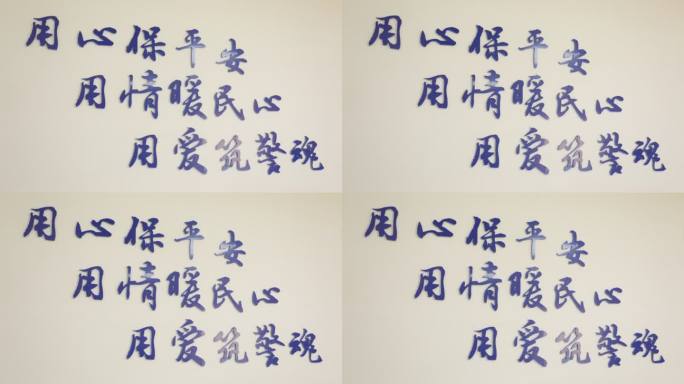 用心保平安 用心保平安
用情暖民心 用情暖民心
用爱筑警魂 用爱筑警魂
用心保平安 用心保平安
用情暖民心 用情暖民心
用爱筑警魂 用爱筑警魂